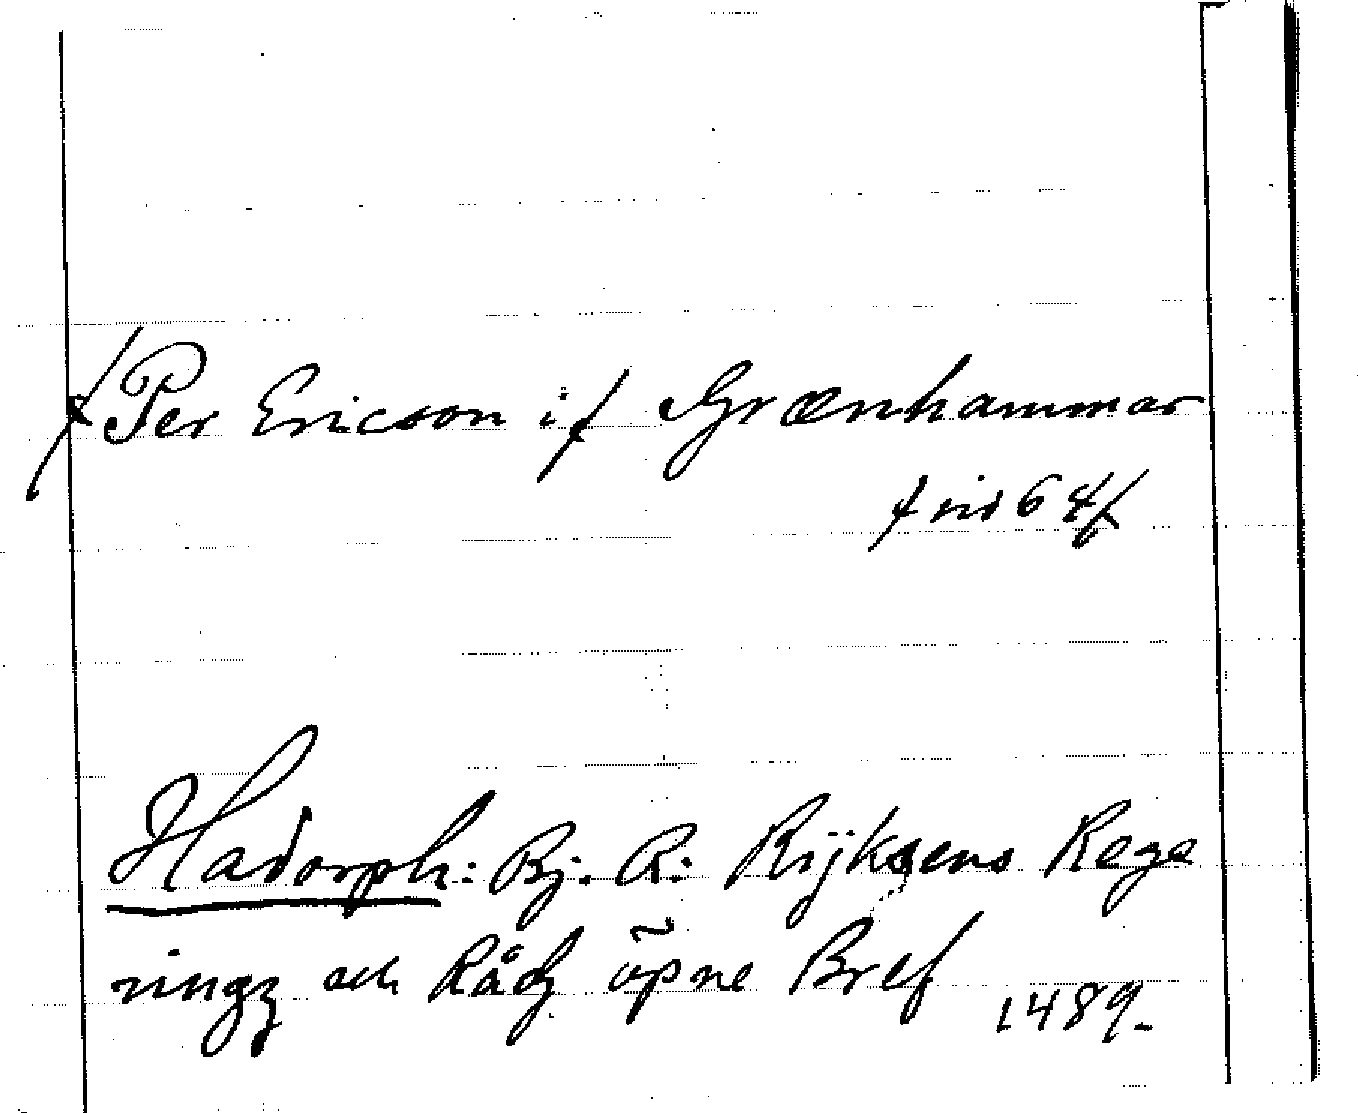 /Per Ericson i/ Grænhammar
/nis 64/
Hadorph: Bj. R: Rijksens Rege
ringz och Rådz öpne Bref 1489.